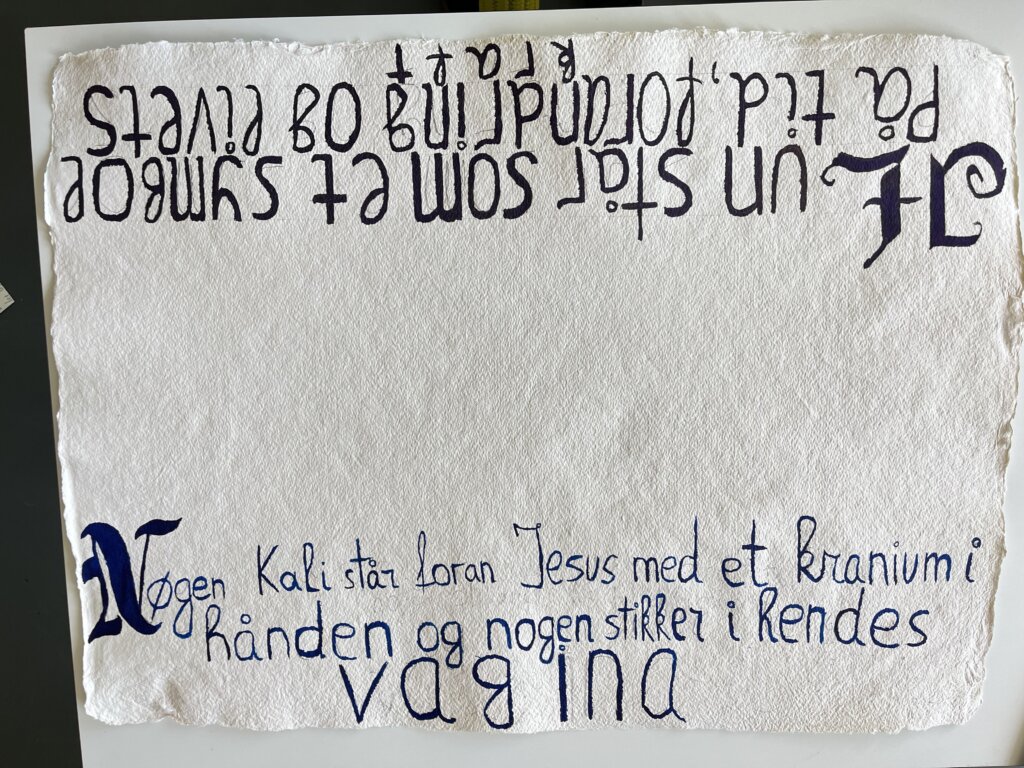 Hun står som et symbol
på tid, forandring og livets
kraft
Nøgen Kali står foran Jesus med et kranium i
hånden og nogen stikker i hendes
vagina